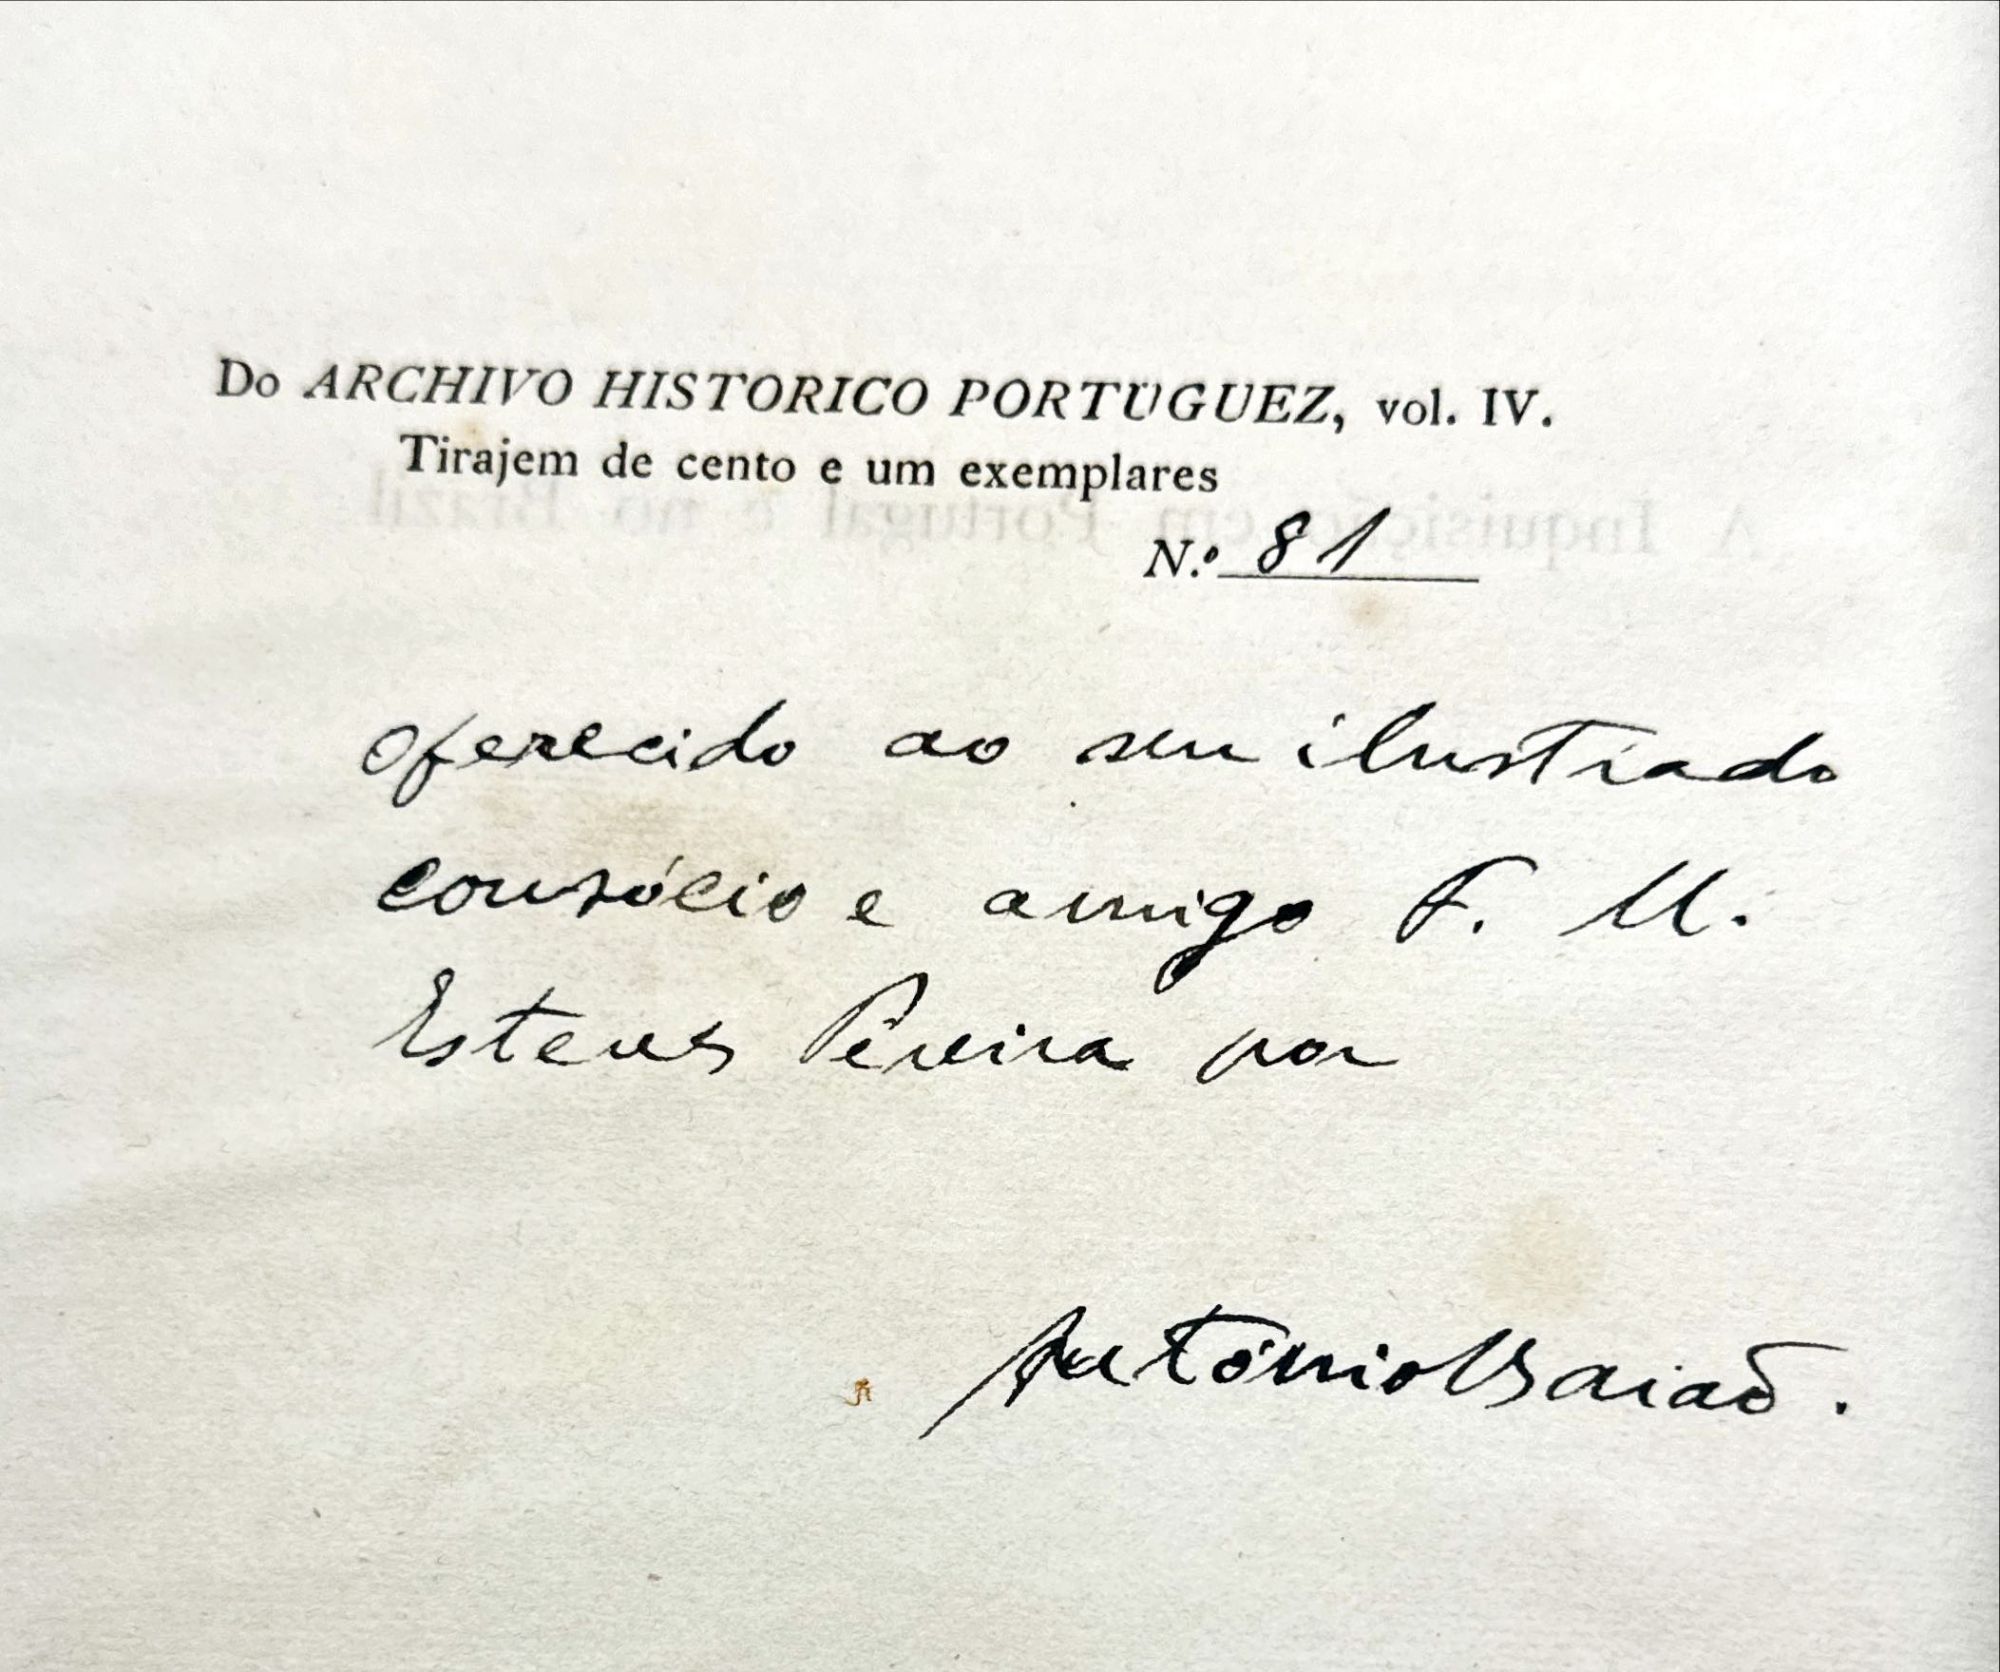 Do ARCHIVO HISTORICO PORTUGUEZ, vol. IV.
Tirajem de cento e um exemplares
A Inquisição em Portugal e no Brazil
N.º 81
oferecido ao seu ilustrado
consócio e amigo F. M.
Esteves Pereira por
António Baião.